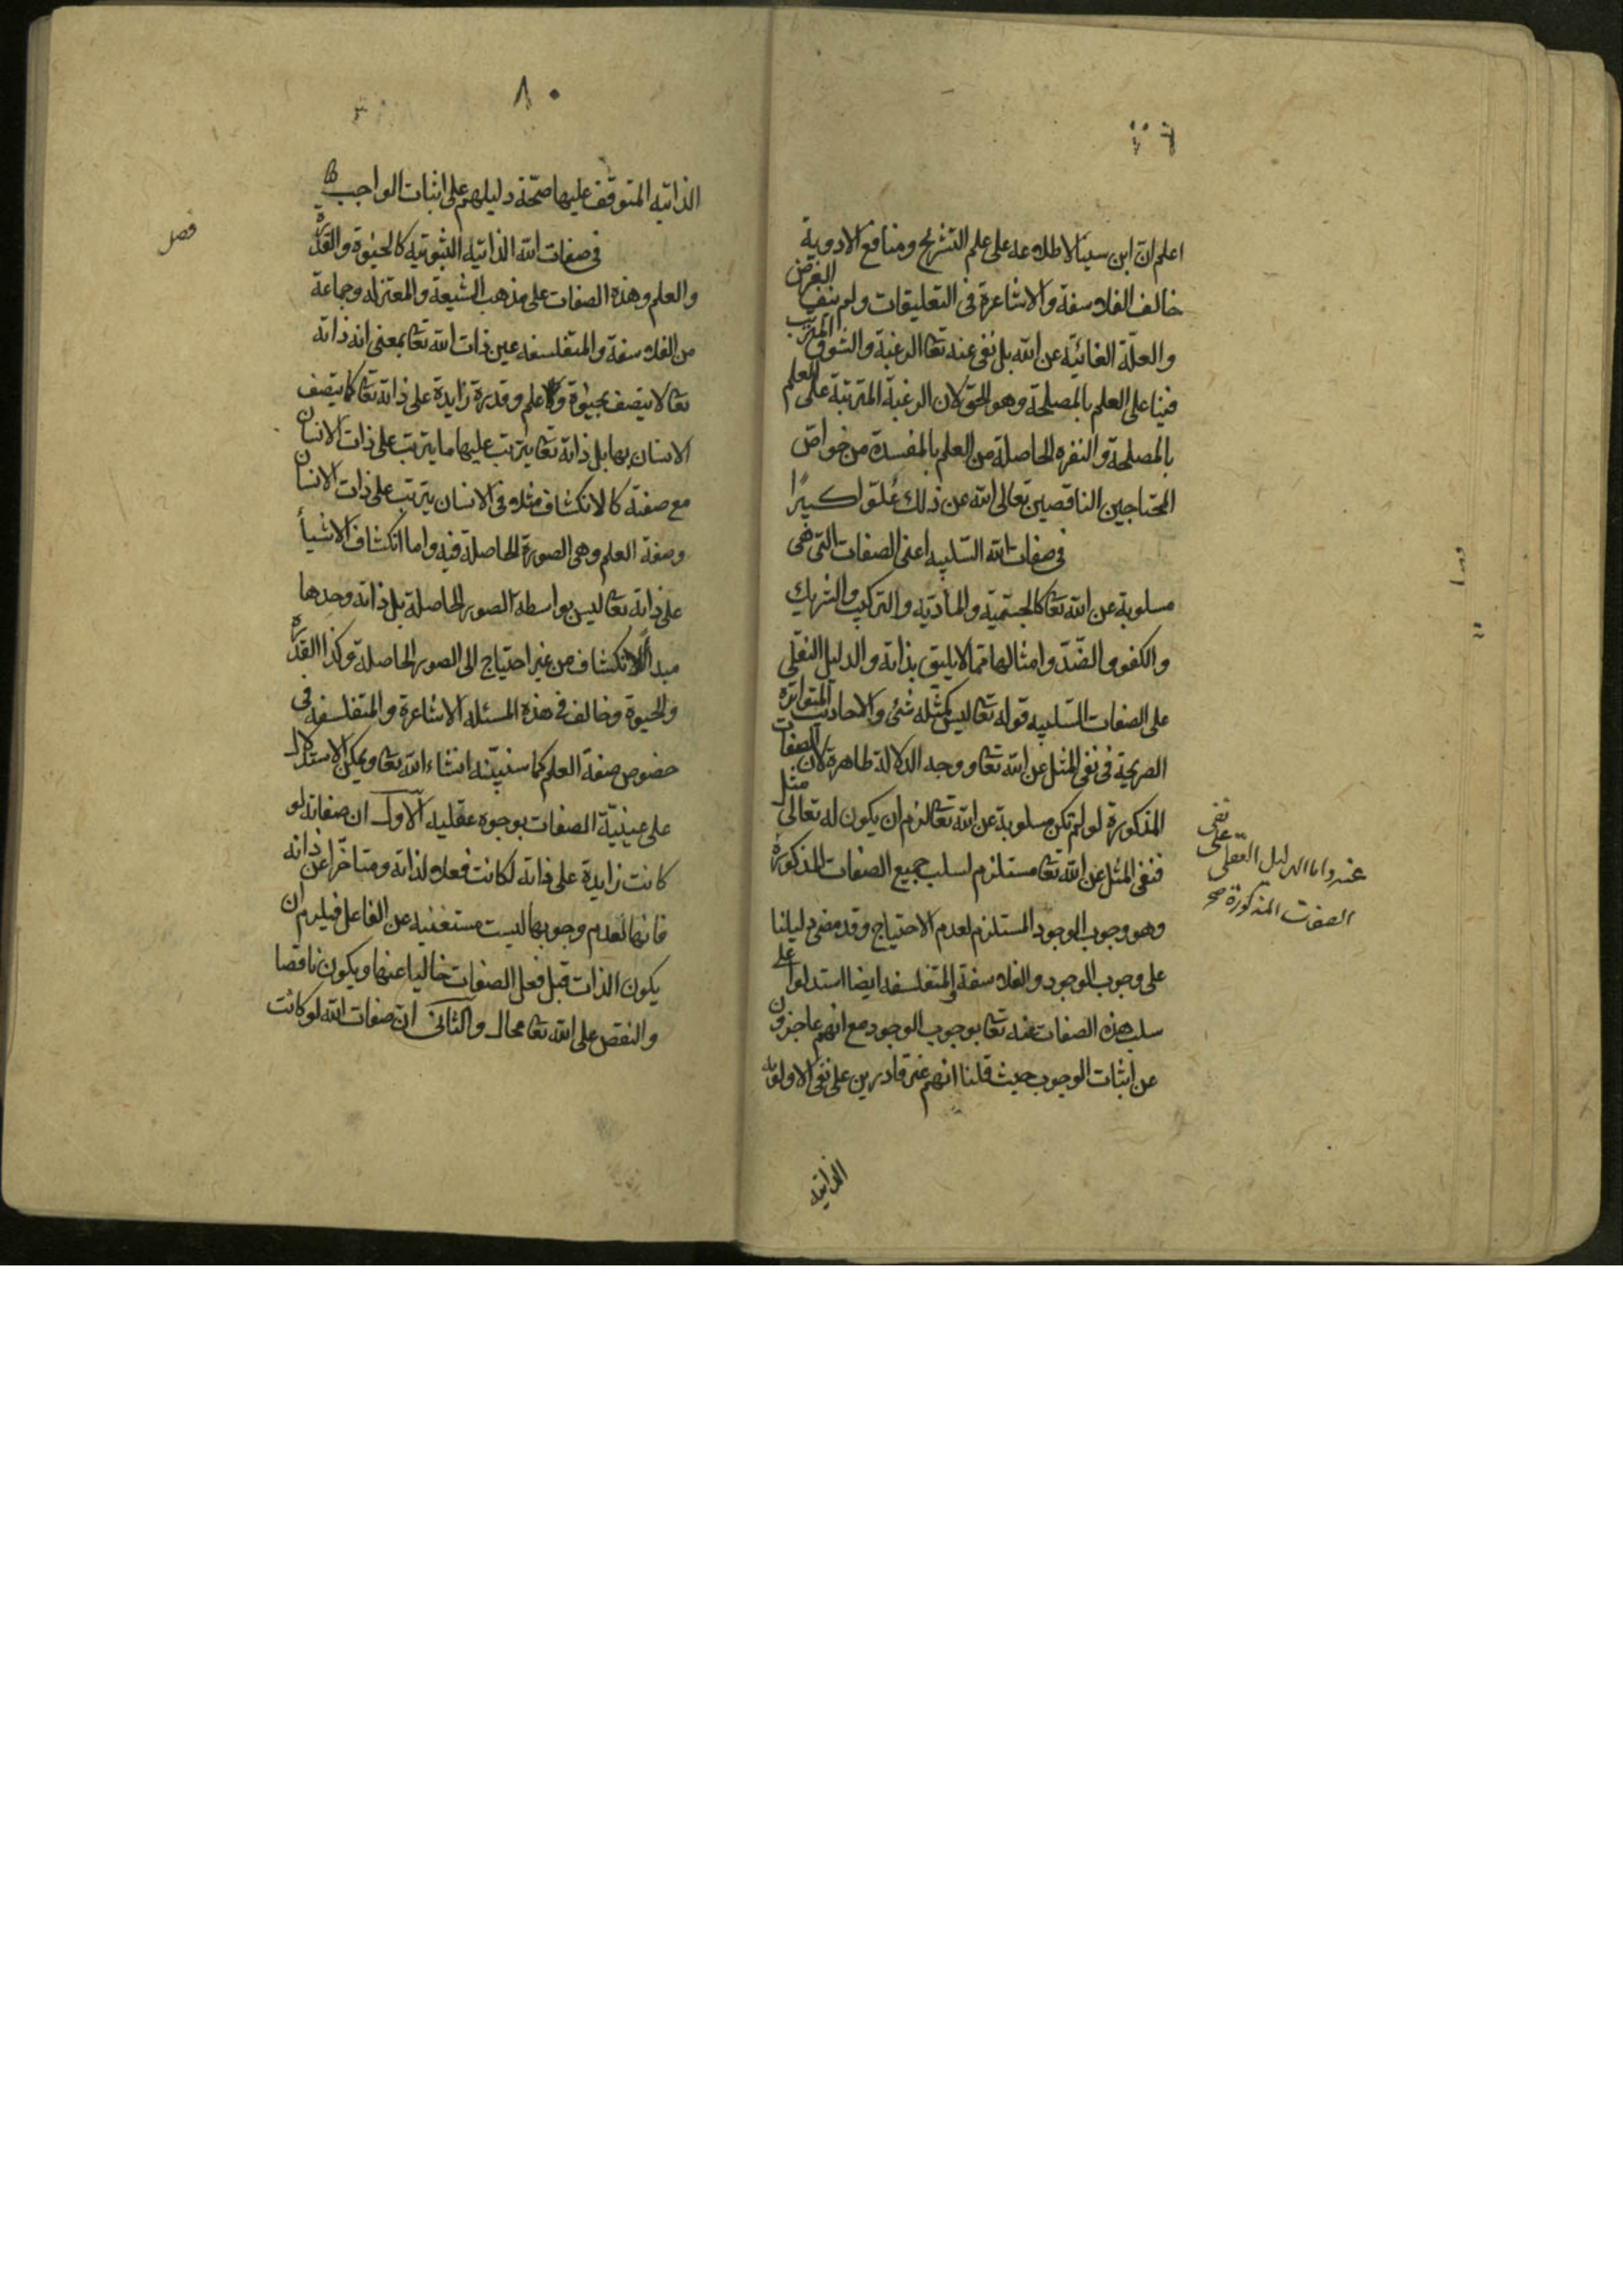 اعلم ان ابن سينا لاطلاعه على علم التشريح ومنافع الادوية
خالف الفلاسفة والاشاعرة فى التعليقات ولم ينف الغرض
والعلة الغائية عن الله بل نفى عنه تعا الرغبة والشوق المترتب
فينا على العلم بالمصلحة وهو الحق لان الرغبة المترتبة على العلم
بالمصلحة والنفره الحاصلة من العلم بالمفسدة من خواص
المحتاجين الناقصين تعالى الله عن ذلك علوا كبيرا
فى صفات الله السلبيه اعنى الصفات التى هى
مسلوبة عن الله تعا كالجسمية والمادية والتركيب والشريك
والكفو والضد وامثالها مما لا يليق بذاته والدليل النقلى
على الصفات السلبيه قوله تعا ليس كمثله شئ والاحاديث المتواترة
الصريحة فى نفى المثل عن الله تعا ووجه الدلالة ظاهرة لان الصفات
المذكورة لو لم تكن مسلوبة عن الله تعا لزم ان يكون له تعالى مثل
فنفى المثل عن الله تعا مستلزم لسلب جميع الصفات المذكورة
وهو وجوب الوجود المستلزم لعدم الاحتياج وقد مضى دليلنا
على وجوب الوجود والفلاسفة والمتفلسفه ايضا استدلوا على
سلب هذه الصفات عنه تعا بوجوب الوجود مع انهم عاجزون
عن اثبات الوجوب حيث قلنا انهم غير قادرين على نفى الاولوية
الذاتيه
عنه واما الدليل العقلى على نفى
الصفات المذكورة صح
٨٠
الذاتيه المتوقف عليها صحة دليلهم على اثبات الواجب
فصل
فى صفات الله الذاتيه الثبوتيه كالحيوة والقدرة
والعلم وهذه الصفات على مذهب الشيعة والمعتزله وجماعة
من الفلاسفة والمتفلسفه عين ذات الله تعا بمعنى انه ذاته
تعا لا يتصف بحيوة ولا علم وقدرة زايدة على ذاته تعا كما يتصف
الانسان بها بل ذاته تعا يترتب عليها ما يترتب على ذات الانسان
مع صفة كالانكشاف مثلا فى الانسان يترتب على ذات الانسان
وصفة العلم وهى الصورة الحاصلة فيه واما انكشاف الاشيأ
على ذاته تعا ليس بواسطه الصور الحاصلة بل ذاته وحدها
مبدأ الانكشاف من غير احتياج الى الصور الحاصلة وكذا القدرة
والحيوة وخالف فى هذه المسئله الاشاعرة والمتفلسفه فى
خصوص صفة العلم كما سنبينه انشاء الله تعا ويمكن الاستدلال
على عينية الصفات بوجوه عقليه الاول ان صفاته لو
كانت زايدة على ذاته لكانت فعلا لذاته ومتاخرا عن ذاته
فانها لعدم وجوبها ليست مستغنيه عن الفاعل فيلزم ان
يكون الذات قبل فعل الصفات خاليا عنها ويكون ناقصا
والنقص على الله تعا محال والثانى ان صفات الله لو كانت